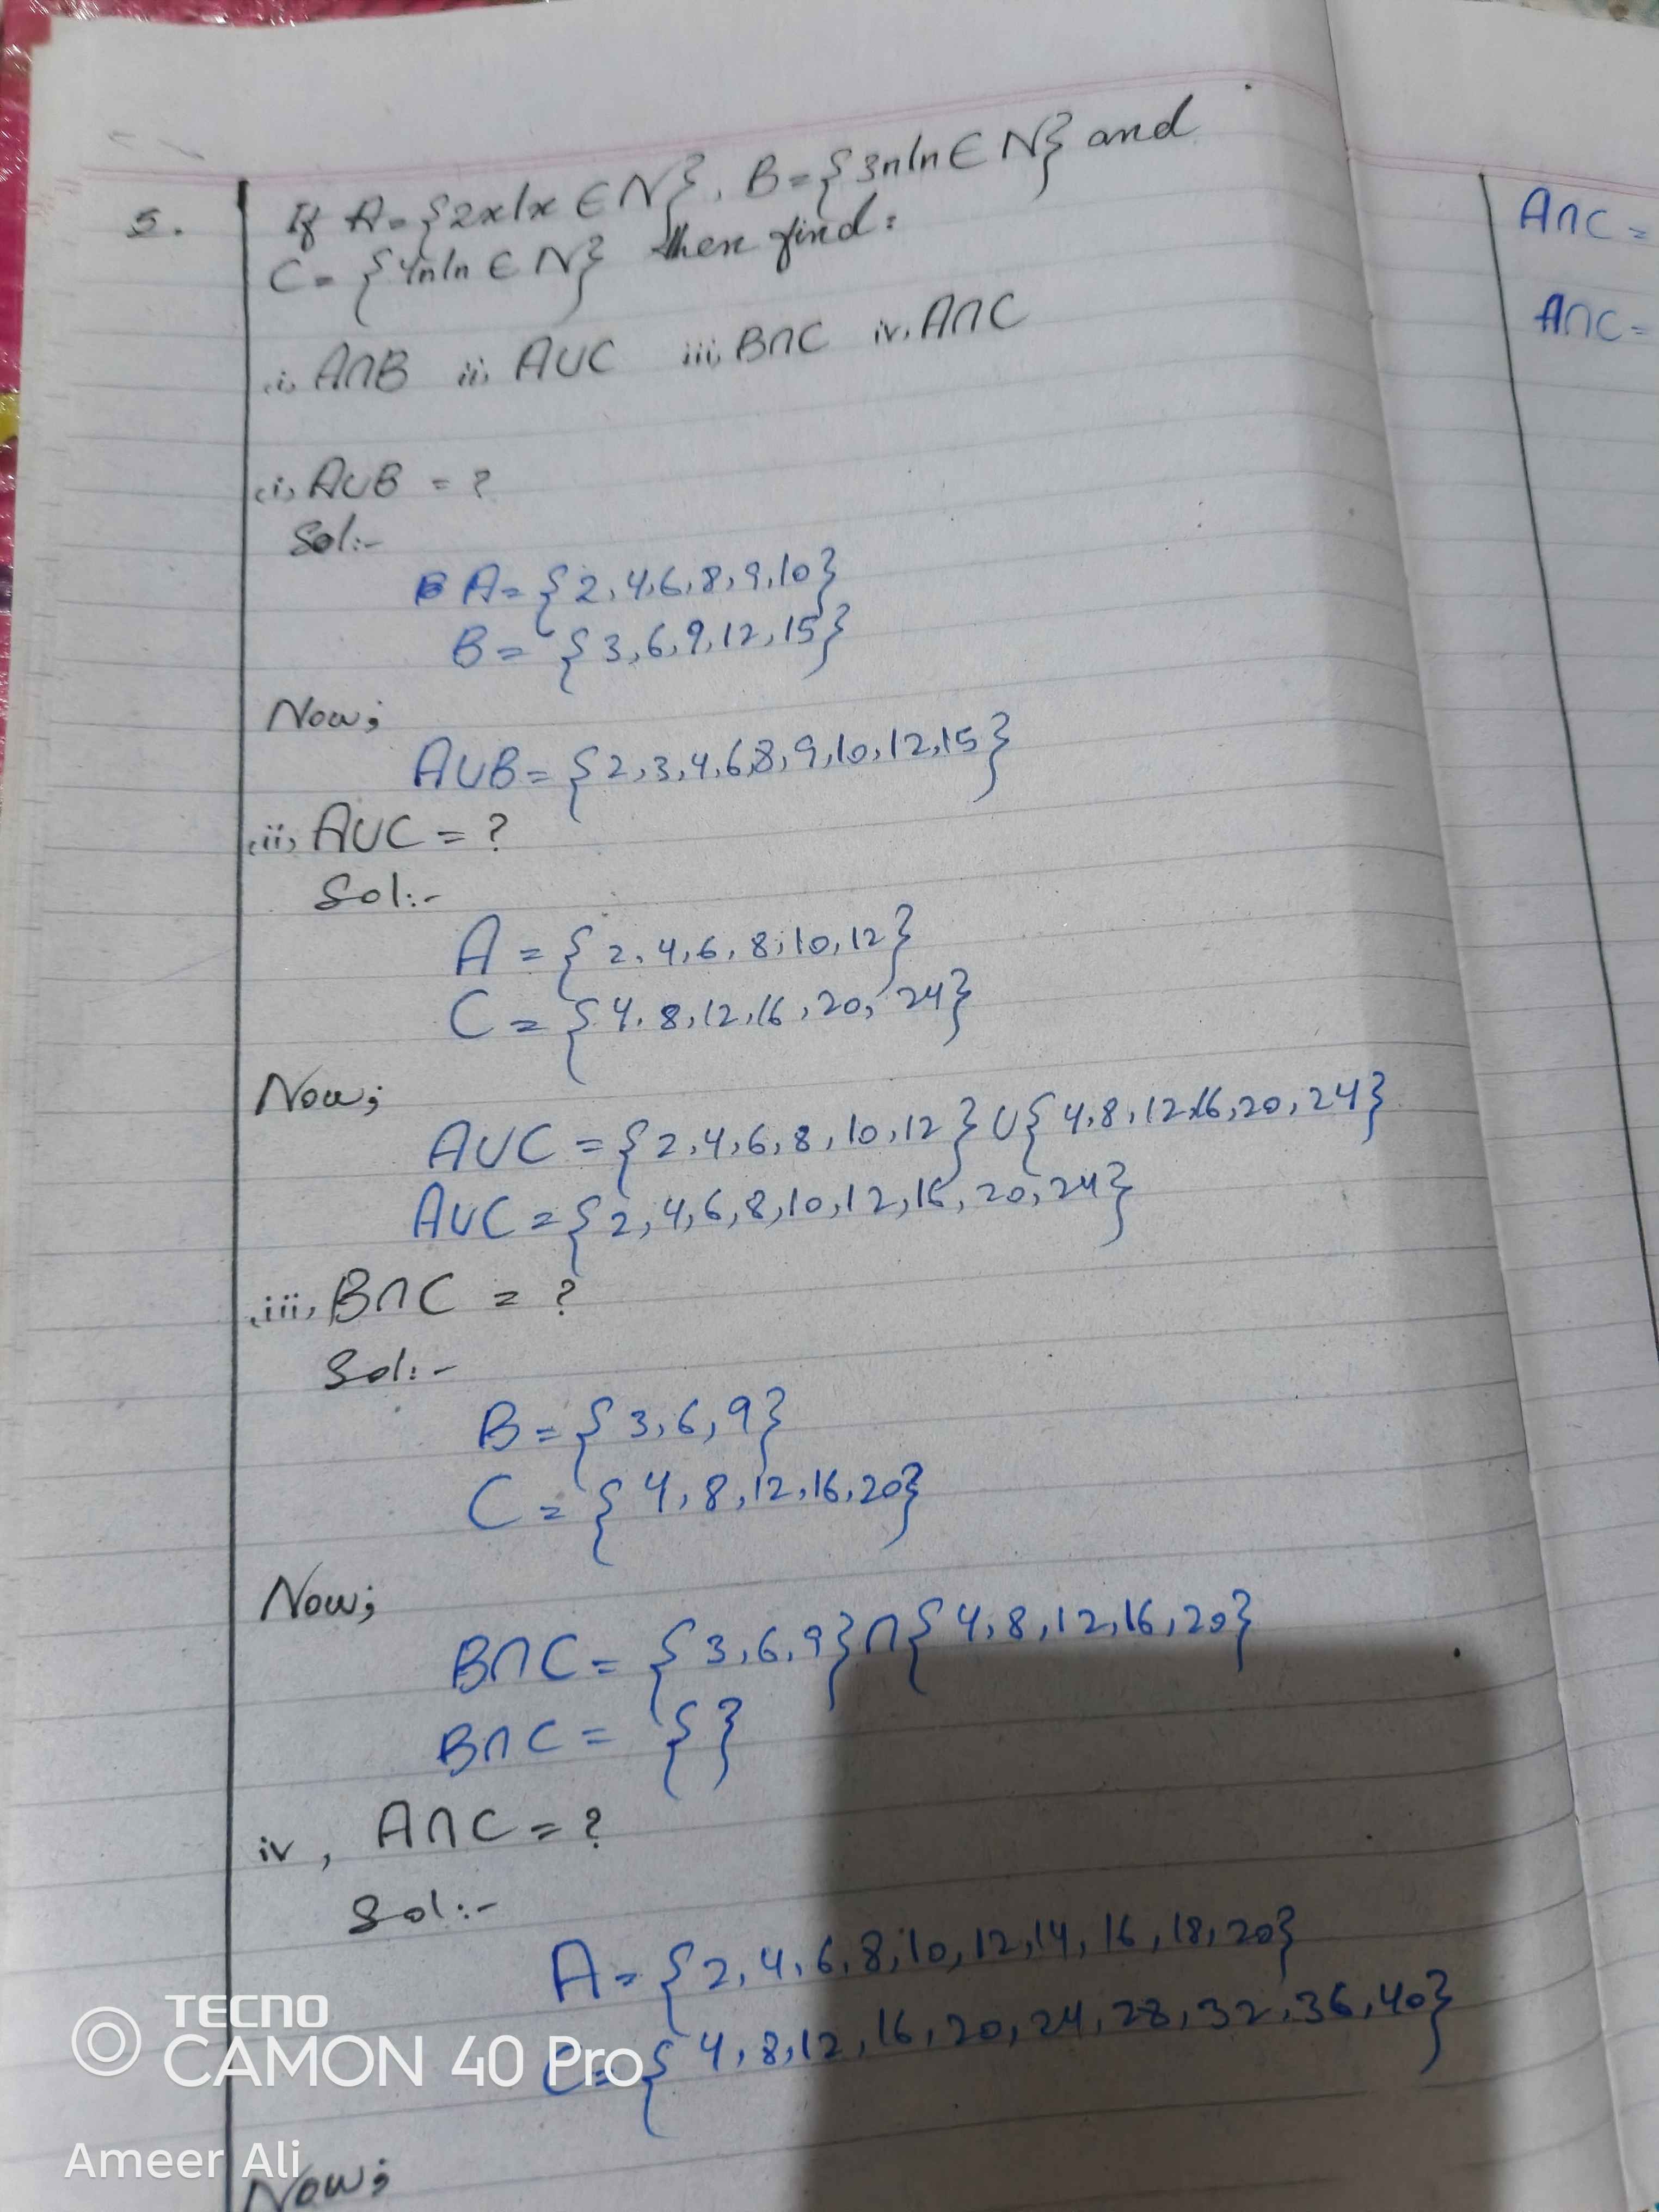 5. If A={2x|x∈N}, B={3n|n∈N} and
C={4n|n∈N} then find:
(i) A∩B ii, A∪C iii, B∩C iv. A∩C
(i) A∪B = ?
Sol:-
A={2,4,6,8,9,10}
B={3,6,9,12,15}
Now;
A∪B={2,3,4,6,8,9,10,12,15}
(ii) A∪C=?
Sol:-
A={2,4,6,8,10,12}
C={4,8,12,16,20,24}
Now;
A∪C={2,4,6,8,10,12}∪{4,8,12,16,20,24}
A∪C={2,4,6,8,10,12,16,20,24}
(iii) B∩C = ?
Sol:-
B={3,6,9}
C={4,8,12,16,20}
Now;
B∩C={3,6,9}∩{4,8,12,16,20}
B∩C={}
iv, A∩C=?
Sol:-
A={2,4,6,8,10,12,14,16,18,20}
C={4,8,12,16,20,24,28,32,36,40}
Now;
A∩C=
A∩C=
TECNO
CAMON 40 Pro
Ameer Ali